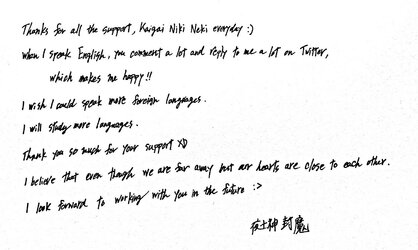 Thanks for all the support, Kaigai Niki Neki everyday :)
When I speak English, you comment a lot and reply to me a lot on Twitter,
which makes me happy!!
I wish I could speak more foreign languages.
I will study more languages.
Thank you so much for your support XD
I believe that even though we are far away but our hearts are close to each other.
I look forward to working with you in the future :>
夜十神封魔